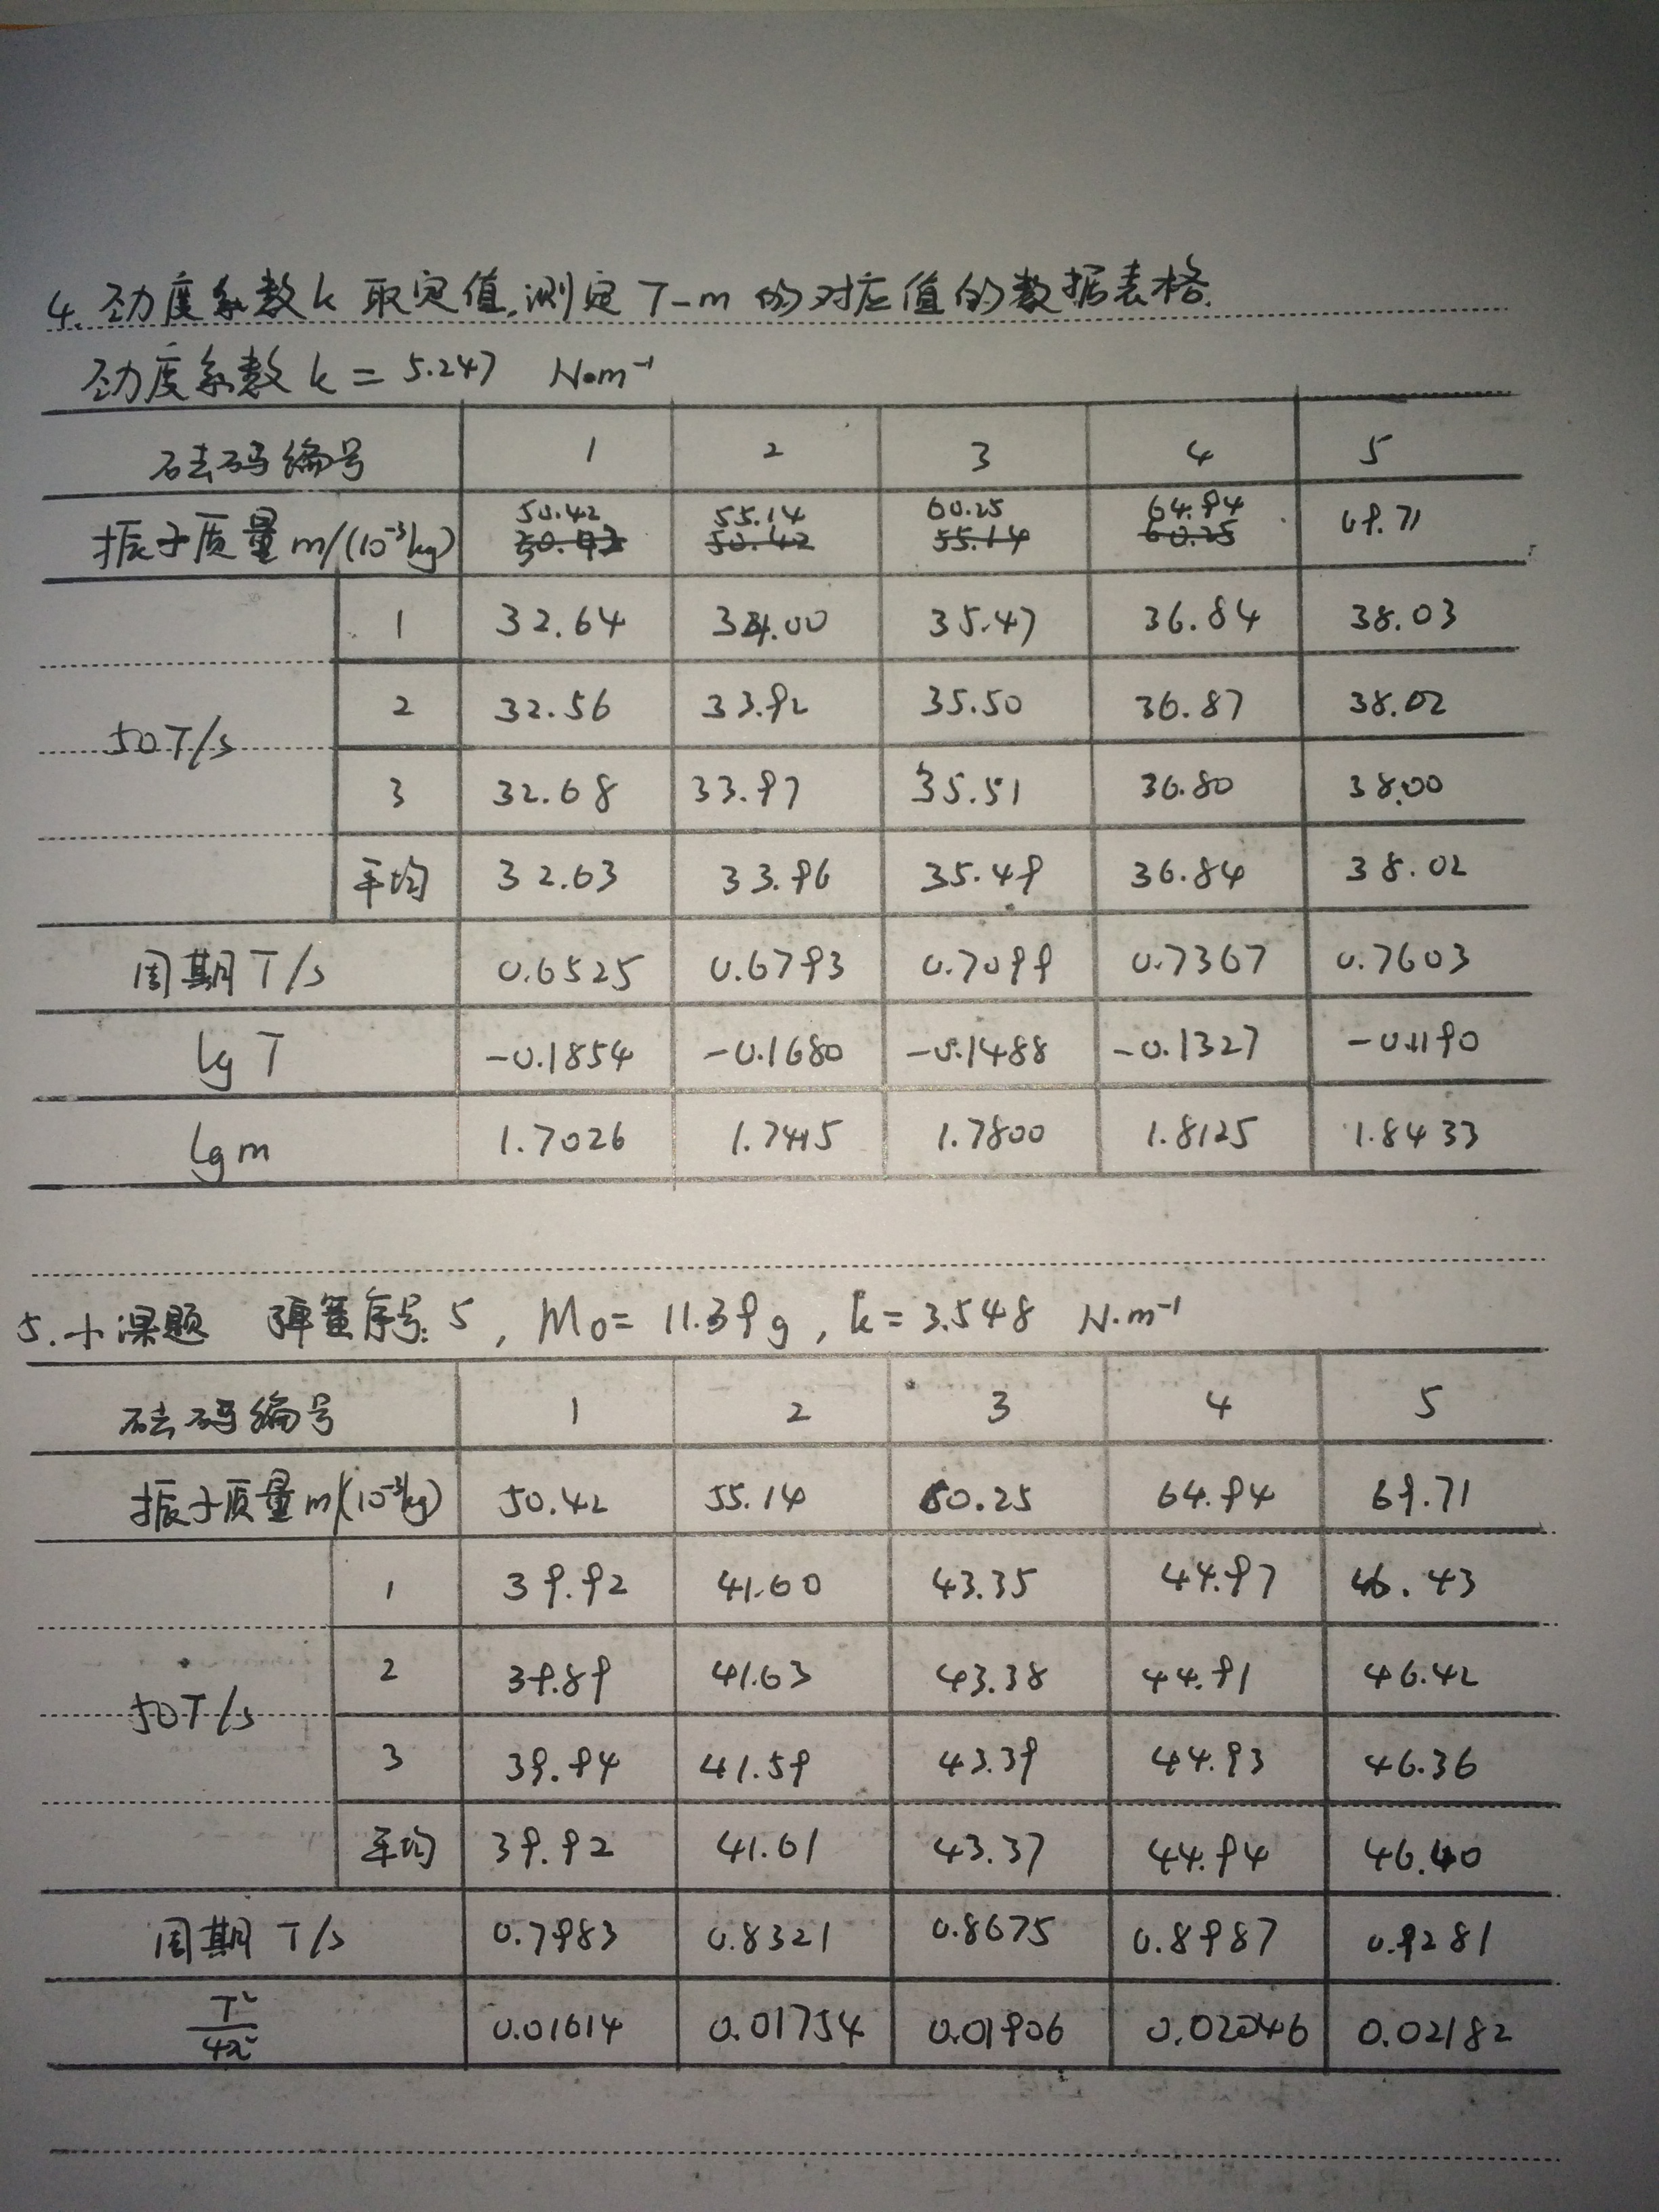 4. 劲度系数 k 取定值,测定 T-m 的对应值的数据表格.
劲度系数 k = 5.247 N·m⁻¹
砝码编号 1 2 3 4 5
50.42 55.14 60.25 64.94
振子质量 m/(10⁻³kg) 50.42 55.14 60.25 69.71
1 32.64 34.00 35.47 36.84 38.03
50T/s 2 32.56 33.92 35.50 36.87 38.02
3 32.68 33.97 35.51 36.80 38.00
平均 32.63 33.96 35.49 36.84 38.02
周期 T/s 0.6525 0.6793 0.7099 0.7367 0.7603
lg T -0.1854 -0.1680 -0.1488 -0.1327 -0.1190
lg m 1.7026 1.7415 1.7800 1.8125 1.8433
5. 小课题 弹簧序号: 5, M₀= 11.39g, k= 3.548 N·m⁻¹
砝码编号 1 2 3 4 5
振子质量 m/(10⁻³kg) 50.42 55.14 60.25 64.94 69.71
1 39.92 41.60 43.35 44.97 46.43
50T/s 2 39.89 41.63 43.38 44.91 46.42
3 39.94 41.59 43.39 44.93 46.36
平均 39.92 41.61 43.37 44.94 46.40
周期 T/s 0.7983 0.8321 0.8675 0.8987 0.9281
T²/4π² 0.01614 0.01754 0.01906 0.02046 0.02182